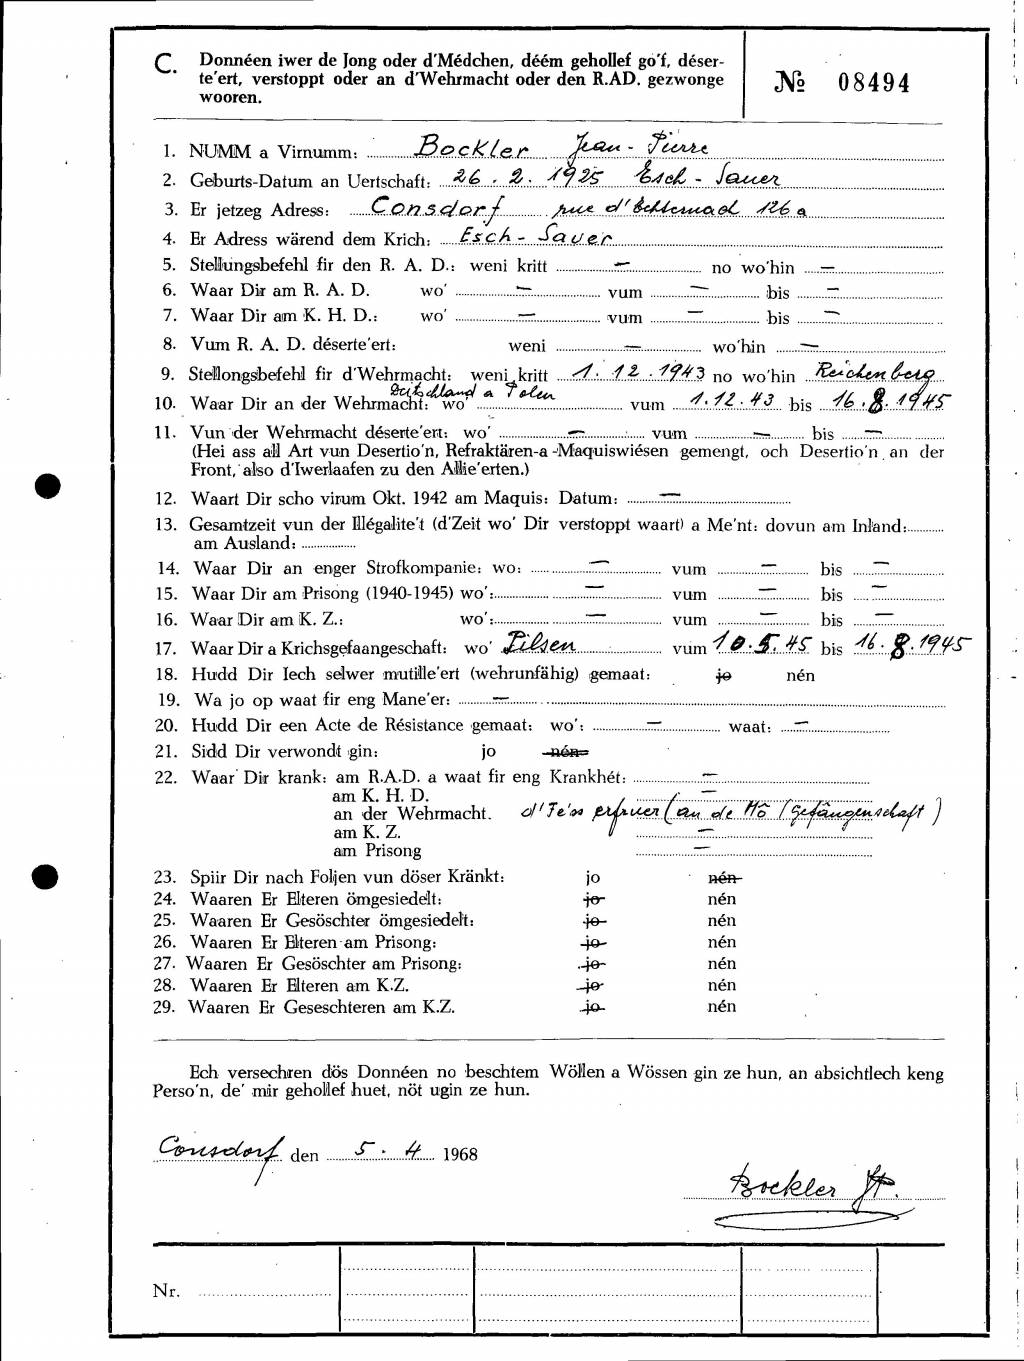 C. Donnéen iwer de Jong oder d'Médchen, déém gehollef go'f, déser-
te'ert, verstoppt oder an d'Wehrmacht oder den R.AD. gezwonge
wooren.
№ 08494
1. NUMM a Virnumm: Bockler Jean-Pierre
2. Geburts-Datum an Uertschaft: 26.2.1925 Esch-Sauer
3. Er jetzeg Adress: Consdorf rue d'Echternach 126a
4. Er Adress wärend dem Krich: Esch-Sauer
5. Stellungsbefehl fir den R. A. D.: weni kritt — no wo'hin —
6. Waar Dir am R. A. D. wo' — vum — bis —
7. Waar Dir am K. H. D.: wo' — vum — bis —
8. Vum R. A. D. déserte'ert: weni — wo'hin —
9. Stellongsbefehl fir d'Wehrmacht: weni kritt 1.12.1943 no wo'hin Reichenberg
10. Waar Dir an der Wehrmacht: wo' Deitschland a Polen vum 1.12.43 bis 16.8.1945
11. Vun der Wehrmacht déserte'ert: wo' — vum — bis —
(Hei ass all Art vun Desertio'n, Refraktären-a-Maquiswiésen gemengt, och Desertio'n an der
Front, also d'Iwerlaafen zu den Allie'erten.)
12. Waart Dir scho virum Okt. 1942 am Maquis: Datum: —
13. Gesamtzeit vun der Illégalite't (d'Zeit wo' Dir verstoppt waart) a Me'nt: dovun am Inland:
am Ausland:
14. Waar Dir an enger Strofkompanie: wo: — vum — bis —
15. Waar Dir am Prisong (1940-1945) wo': — vum — bis —
16. Waar Dir am K. Z.: wo': — vum — bis —
17. Waar Dir a Krichsgefaangeschaft: wo' Pilsen vum 10.5.45 bis 16.8.1945
18. Hudd Dir Iech selwer mutille'ert (wehrunfähig) gemaat: jo nén
19. Wa jo op waat fir eng Mane'er: —
20. Hudd Dir een Acte de Résistance gemaat: wo': — waat: —
21. Sidd Dir verwondt gin: jo nén
22. Waar Dir krank: am R.A.D. a waat fir eng Krankhét: —
am K. H. D. —
an der Wehrmacht. d'Fe'ss erfruer (an de Hô / Gefängenschaft)
am K. Z. —
am Prisong —
23. Spiir Dir nach Foljen vun döser Kränkt: jo nén
24. Waaren Er Elteren ömgesiedelt: jo nén
25. Waaren Er Gesöschter ömgesiedelt: jo nén
26. Waaren Er Elteren am Prisong: jo nén
27. Waaren Er Gesöschter am Prisong: jo nén
28. Waaren Er Elteren am K.Z. jo nén
29. Waaren Er Geseschteren am K.Z. jo nén
Ech versechren dös Donnéen no beschtem Wöllen a Wössen gin ze hun, an absichtlech keng
Perso'n, de' mir gehollef huet, nöt ugin ze hun.
Consdorf den 5.4 1968
Bockler JP.
Nr.